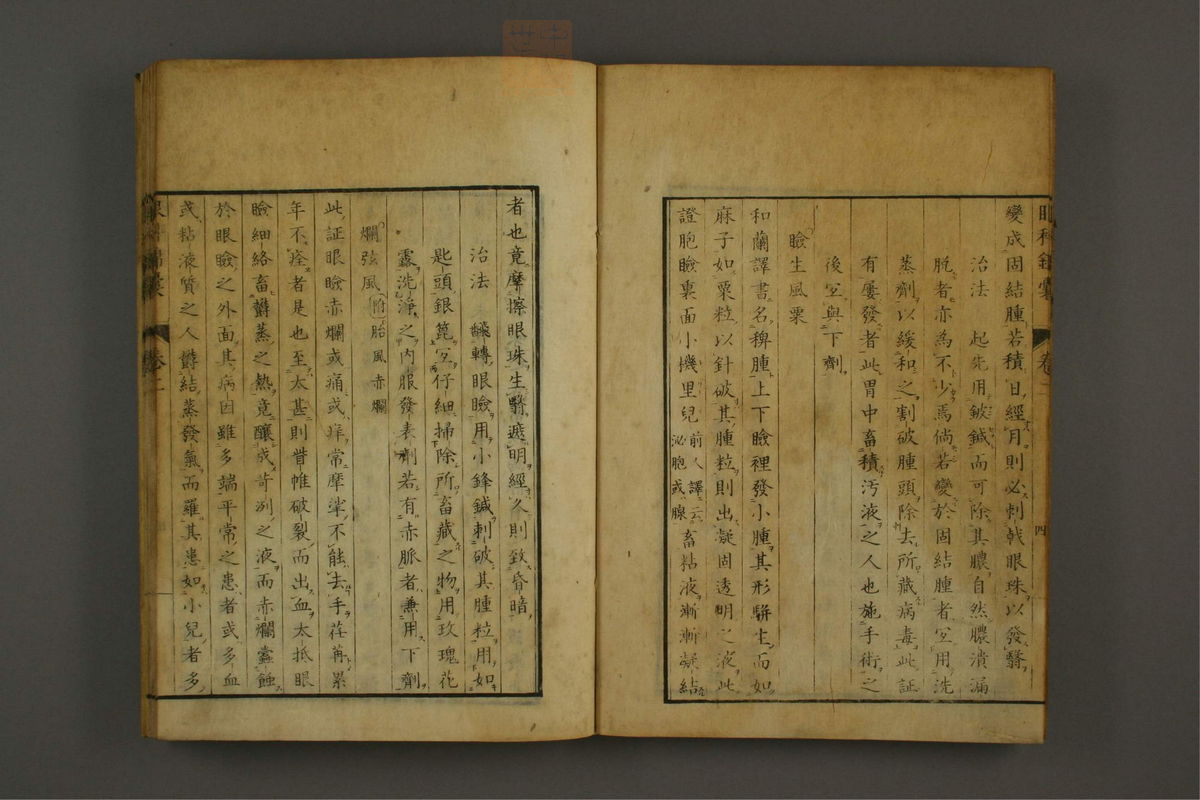 變成固結腫若積日經月則必刺戟眼珠以發翳
治法 起先用鈹鍼而可除其膿自然膿潰漏
脫者亦為不少焉倘若變於固結腫者宜用洗
蒸劑以緩和之割破腫頭除去所藏病毒此証
有屢發者此胃中畜積汚液之人也施手術之
後宜與下劑
瞼生風粟
和蘭譯書名稗腫上下瞼裡發小腫其形駢生而如
麻子如粟粒以針破其腫粒則出凝固透明之液此
證胞瞼裏面小機里兒前人譯云泌胞或腺畜粘液漸漸凝結
者也竟摩擦眼珠生翳遮明經久則致昏暗
治法 飜轉眼瞼用小鋒鍼刺破其腫粒用如
匙頭銀篦宜仔細掃除所畜藏之物用玫瑰花
露洗淨之內服發表劑若有赤脈者兼用下劑
爛弦風 附 胎風赤爛
此証眼瞼赤爛或痛或痒常摩擦不能去手荏苒累
年不痊者是也至太甚則眥帷破裂而出血太抵眼
瞼細絡畜欝蒸之熱竟釀成苛冽之液而赤爛蠹蝕
於眼瞼之外面其病因雖多端平常之患者或多血
或粘液質之人欝結蒸發氣而羅其患如小兒者多
卷二
四